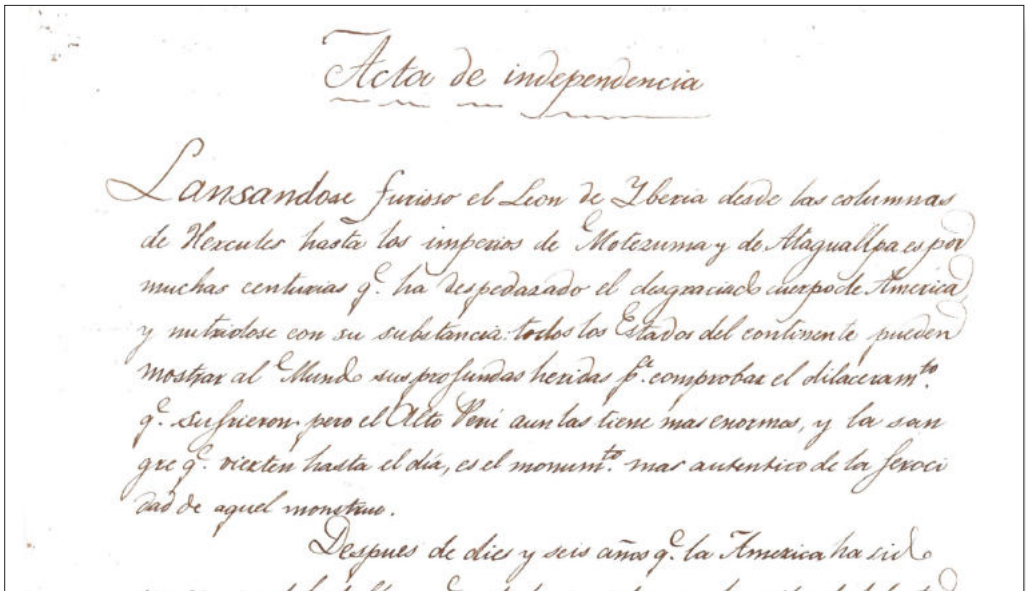 Acta de independencia
Lansandose furioso el Leon de Yberia desde las columnas
de Hercules hasta los imperios de Motezuma y de Atagualfpa es por
muchas centurias q.e ha despedazado el desgraciado cuerpo de America
y nutridose con su substancia. todos los Estados del continente pueden
mostrar al Mundo sus profundas heridas p.a comprobar el dilaceram.to
q.e sufrieron pero el Alto Perú aun las tiene mas enormes, y la san
gre q.e vierten hasta el día, es el monum.to mas autentico de la feroci
dad de aquel monstruo.
Despues de dies y seis años q.e la America ha sido